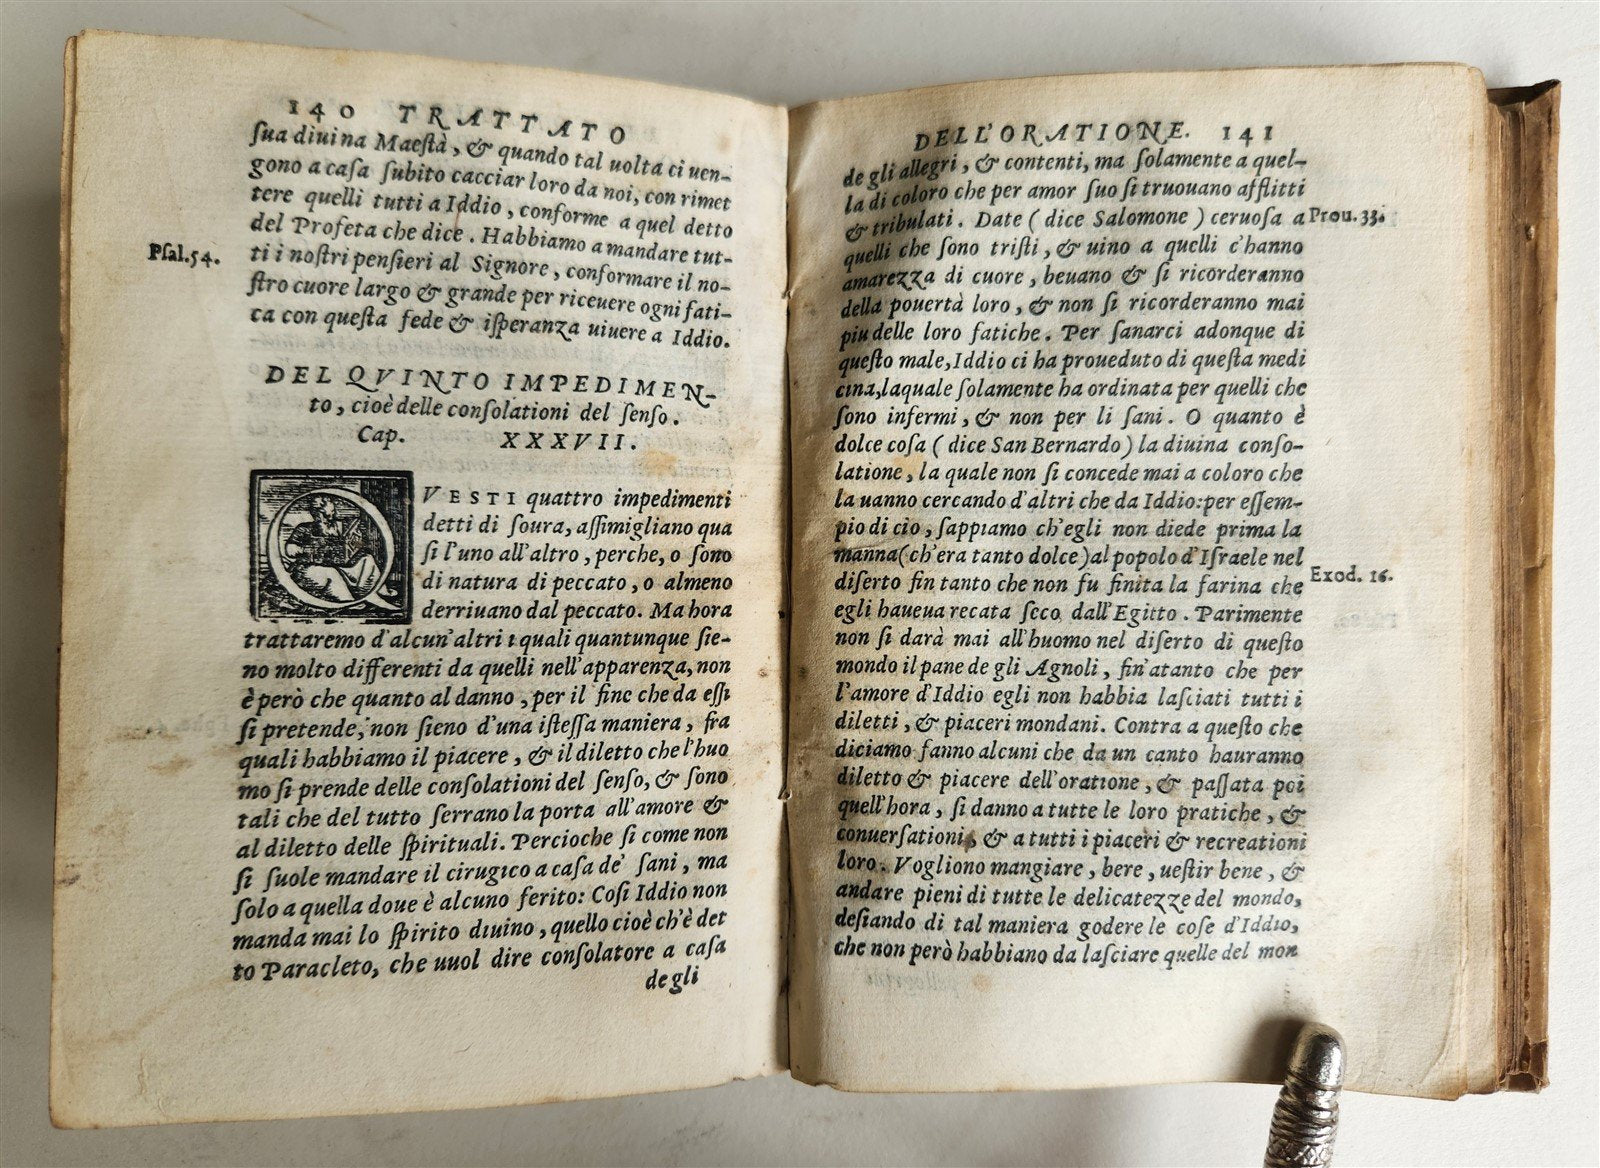 140 TRATTATO
ſua diuina Maeſtà, & quando tal uolta ci uen-
gono a caſa ſubito cacciar loro da noi, con rimet
tere quelli tutti a Iddio, conforme a quel detto
del Profeta che dice. Habbiamo a mandare tut-
Pſal. 54.
ti i noſtri penſieri al Signore, conformare il no-
ſtro cuore largo & grande per riceuere ogni fati-
ca con queſta fede & iſperanza uiuere a Iddio.
DEL QVINTO IMPEDIMEN-
to, cioè delle conſolationi del ſenſo.
Cap. XXXVII.
QVESTI quattro impedimenti
detti di ſoura, aſſimigliano qua
ſi l'uno all'altro, perche, o ſono
di natura di peccato, o almeno
derriuano dal peccato. Ma hora
trattaremo d'alcun'altri i quali quantunque ſie-
no molto differenti da quelli nell'apparenza, non
è però che quanto al danno, per il fine che da eſſi
ſi pretende, non ſieno d'una iſteſſa maniera, fra
quali habbiamo il piacere, & il diletto che l'huo
mo ſi prende delle conſolationi del ſenſo, & ſono
tali che del tutto ſerrano la porta all'amore &
al diletto delle ſpirituali. Percioche ſi come non
ſi ſuole mandare il cirugico a caſa de' ſani, ma
ſolo a quella doue è alcuno ferito: Coſi Iddio non
manda mai lo ſpirito diuino, quello cioè ch'è det
to Paracleto, che uuol dire conſolatore a caſa
de gli
DELL'ORATIONE. 141
de gli allegri, & contenti, ma ſolamente a quel-
la di coloro che per amor ſuo ſi truouano afflitti
& tribulati. Date (dice Salomone) ceruoſa a
Prou. 33.
quelli che ſono triſti, & uino a quelli c'hanno
amarezza di cuore, beuano & ſi ricorderanno
della pouertà loro, & non ſi ricorderanno mai
piu delle loro fatiche. Per ſanarci adonque di
queſto male, Iddio ci ha proueduto di queſta medi
cina, laquale ſolamente ha ordinata per quelli che
ſono infermi, & non per li ſani. O quanto è
dolce coſa (dice San Bernardo) la diuina conſo-
latione, la quale non ſi concede mai a coloro che
la uanno cercando d'altri che da Iddio: per eſſem-
pio di cio, ſappiamo ch'egli non diede prima la
manna (ch'era tanto dolce) al popolo d'Iſraele nel
Exod. 16.
diſerto fin tanto che non fu finita la farina che
egli haueua recata ſeco dall'Egitto. Parimente
non ſi darà mai all'huomo nel diſerto di queſto
mondo il pane de gli Agnoli, fin'atanto che per
l'amore d'Iddio egli non habbia laſciati tutti i
diletti, & piaceri mondani. Contra a queſto che
diciamo fanno alcuni che da un canto hauranno
diletto & piacere dell'oratione, & paſſata poi
quell'hora, ſi danno a tutte le loro pratiche, &
conuerſationi, & a tutti i piaceri & recreationi
loro. Vogliono mangiare, bere, ueſtir bene, &
andare pieni di tutte le delicatezze del mondo,
deſiando di tal maniera godere le coſe d'Iddio,
che non però habbiano da laſciare quelle del mon